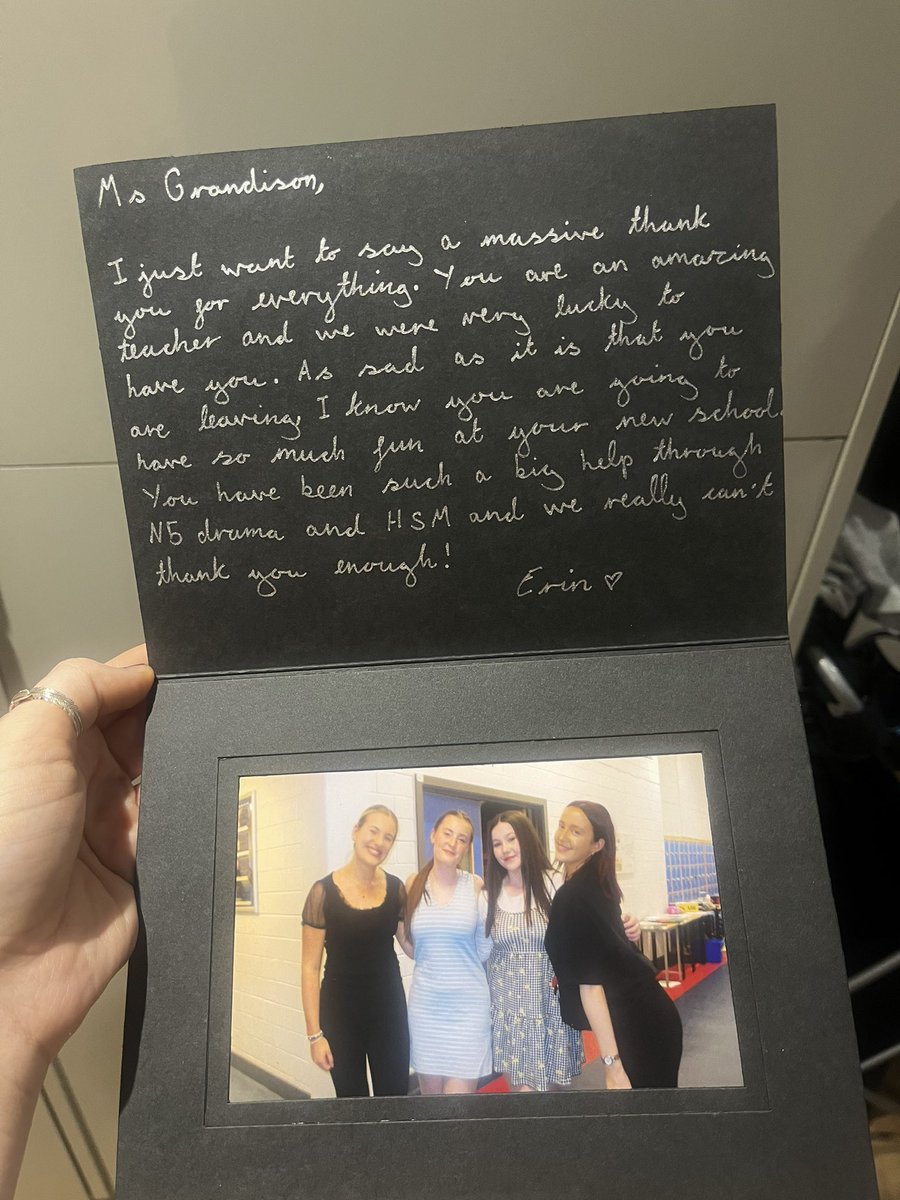 Ms Grandison,
I just want to say a massive thank
you for everything. You are an amazing
teacher and we were very lucky to
have you. As sad as it is that you
are leaving, I know you are going to
have so much fun at your new school.
You have been such a big help through
N5 drama and HSM and we really can't
thank you enough!
Erin ♡